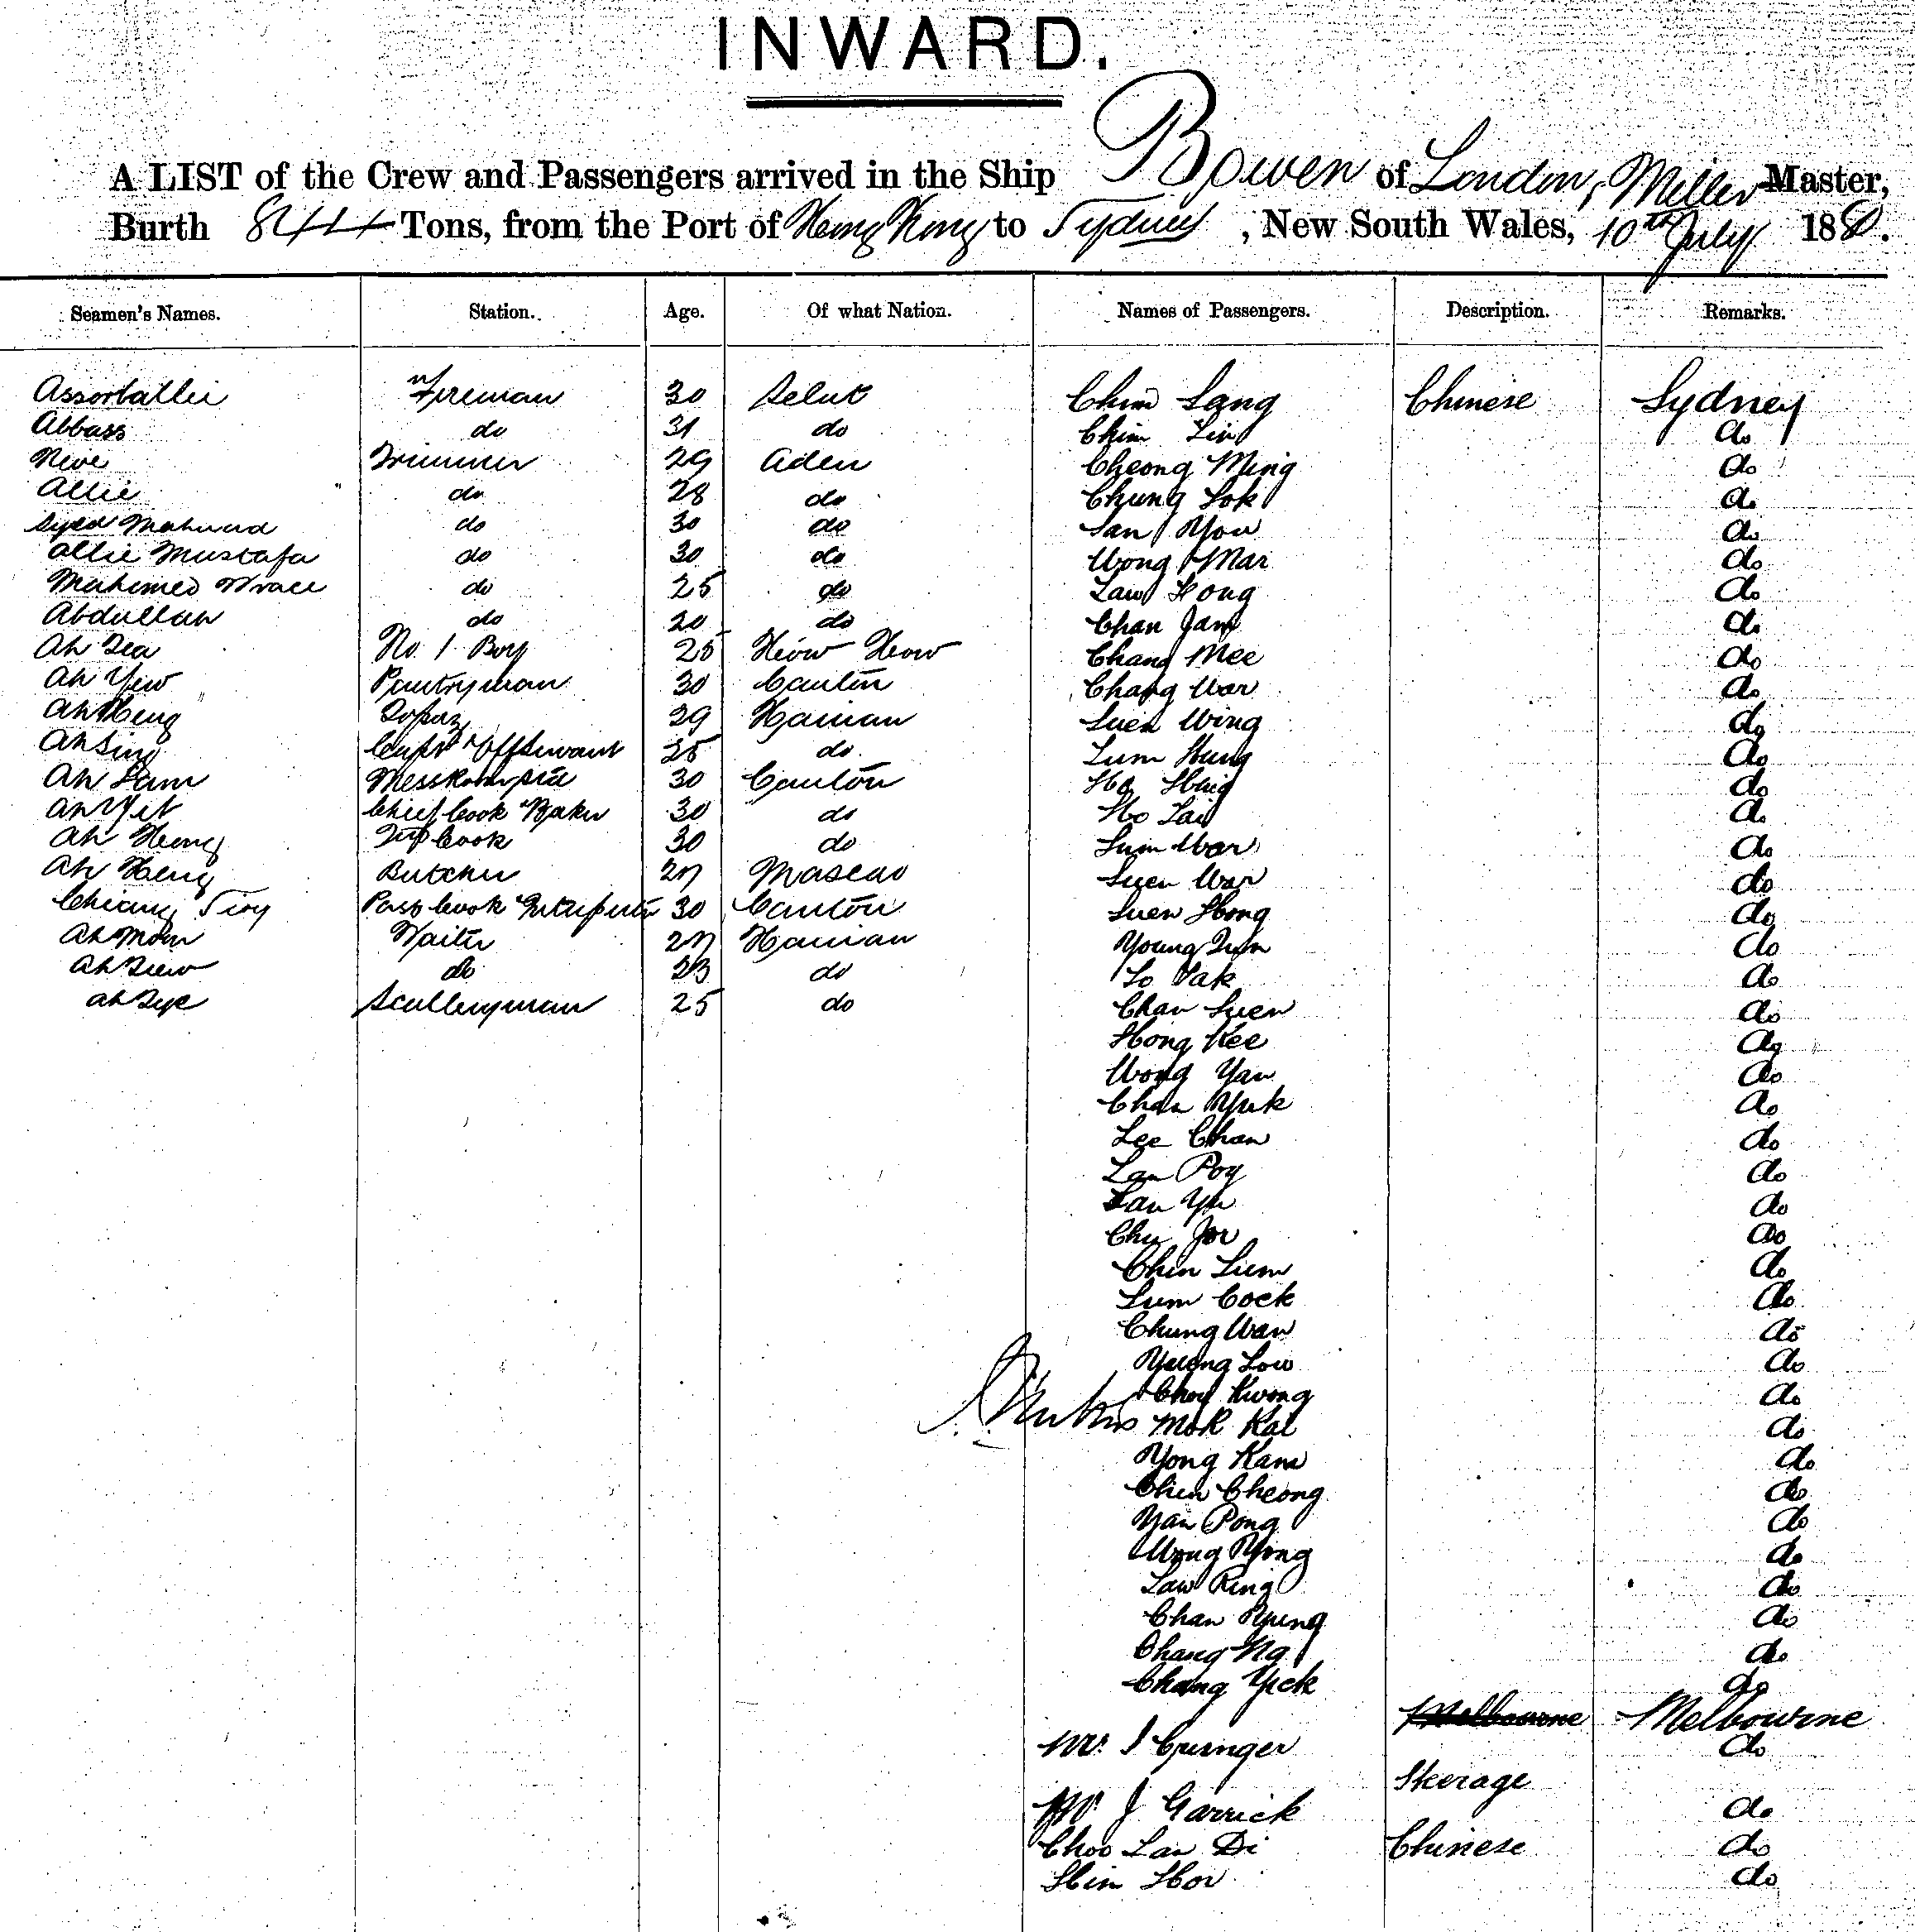 INWARD.
A LIST of the Crew and Passengers arrived in the Ship Bowen of London, Miller Master,
Burth 844 Tons, from the Port of Hong Kong to Sydney, New South Wales, 10th July 1880.
Seamen's Names. Station. Age. Of what Nation. Names of Passengers. Description. Remarks.
Fireman 30 Chim Sang Chinese Sydney
Abbass do 31 do Chim Lin do
Trimmer 29 Aden Cheong Ming do
Allie do 28 do Chung Sok do
Syed Mahmud do 30 do San You do
Allie Mustafa do 30 do Wong Mar do
do 25 do Law Hong do
Abdullah do 20 do Chan Jam do
No. 1 Boy 25 Chang Mee do
Ah Yew Pantryman 30 Canton Chang War do
Ah Heng Topaz 29 Hainan Suen Wing do
Ah Sing 25 do Lum Hung do
Ah Sam 30 Canton Ho Hing do
Ah Yit Chief Cook & Baker 30 do Ho Lai do
Ah Heong Cook 30 do Sum War do
Ah Heng Butcher 27 Macao Suen War do
Chiang Cook 30 Canton Suen Hong do
Ah Mow Waiter 27 Hainan Young Tum do
do 23 do Lo Pak do
Ah Tye Sculleryman 25 do Chan Suen do
Hong Kee do
Wong Yan do
Chan Yuk do
Lee Chan do
Lau Poy do
Lau Yu do
Chu Jor do
Chin Lum do
Sum Cock do
Chung Wan do
Yueng Low do
Choy Kwong do
Mok Kai do
Yong Kam do
Chin Cheong do
Yan Pong do
Wong Yong do
Law King do
Chan Yung do
Chang Ng do
Chang Yick do
Melbourne Melbourne
Mr. I do
Steerage
Mr. J Garrick do
Choo Lan Di Chinese do
Hin Hor do